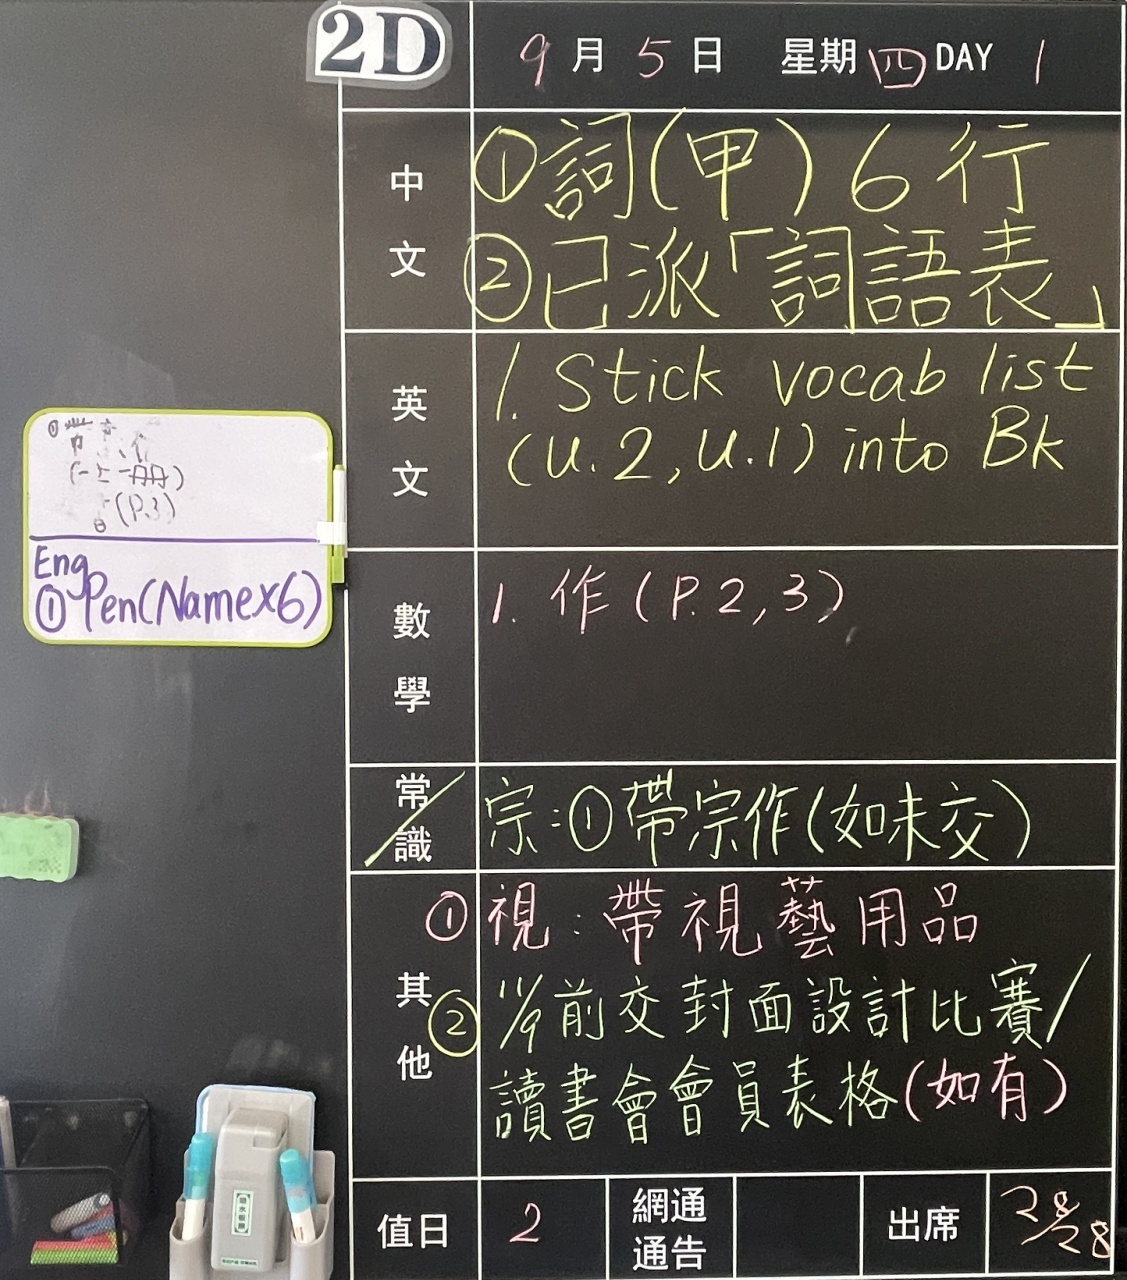 2D
9月5日 星期四 DAY 1
中文
①詞(甲)6行
②已派「詞語表」
英文
1. Stick vocab list
(U.2, U.1) into Bk
數學
1. 作(P.2,3)
常識
宗:①帶宗作(如未交)
其他
①視:帶視藝用品
②11/9前交封面設計比賽/
讀書會會員表格(如有)
值日 2 網通通告 出席 28/28
(一上一冊)
(P.3)
Eng
①Pen(Name×6)